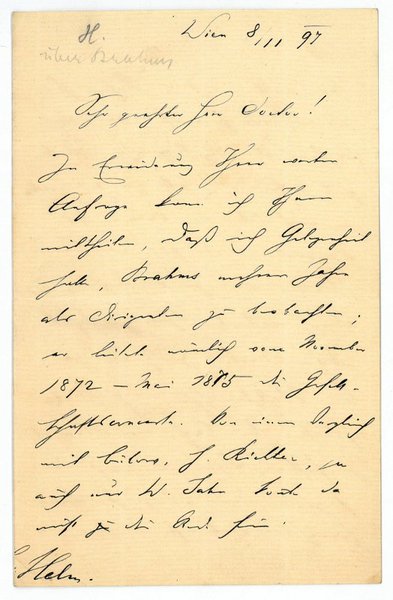 H.
über Brahms
Wien 8/11 97
Sehr geehrter Herr Doctor!
In Erwiderung Ihrer werten
Anfrage kann ich Ihnen
mittheilen, daß ich Gelegenheit
hatte, Brahms mehrere Jahre
als Dirigenten zu beobachten;
er leitete nämlich vom November
1872 – Mai 1875 die Gesell-
schaftsconcerte. Von einem Vergleich
mit Bülow, H. Richter, ja
auch nur W. Jahn konnte da
nicht die Rede sein.
Helm.